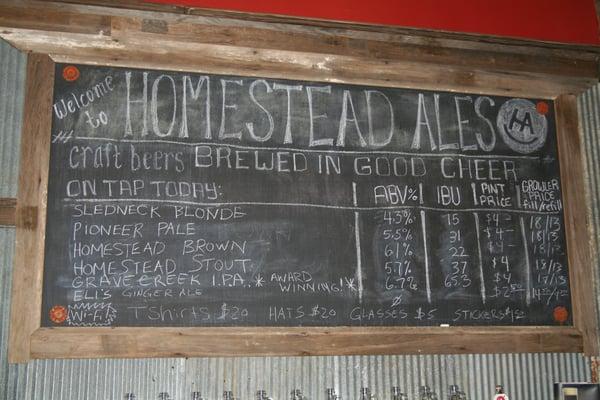 Welcome to HOMESTEAD ALES HA
craft beers BREWED IN GOOD CHEER
ON TAP TODAY: ABV% IBU PINT PRICE GROWLER PRICE fill/refill
SLEDNECK BLONDE 4.3% 15 $4 18/13
PIONEER PALE 5.5% 31 $4 18/13
HOMESTEAD BROWN 6.1% 22 $4 18/13
HOMESTEAD STOUT 5.7% 37 $4 18/13
GRAVE CREEK I.P.A. *AWARD WINNING!* 6.7% 65.3 $4 17/13
ELI'S GINGER ALE Ø $2.50
Wi-Fi! T Shirts $20 HATS $20 GLASSES $5 STICKERS